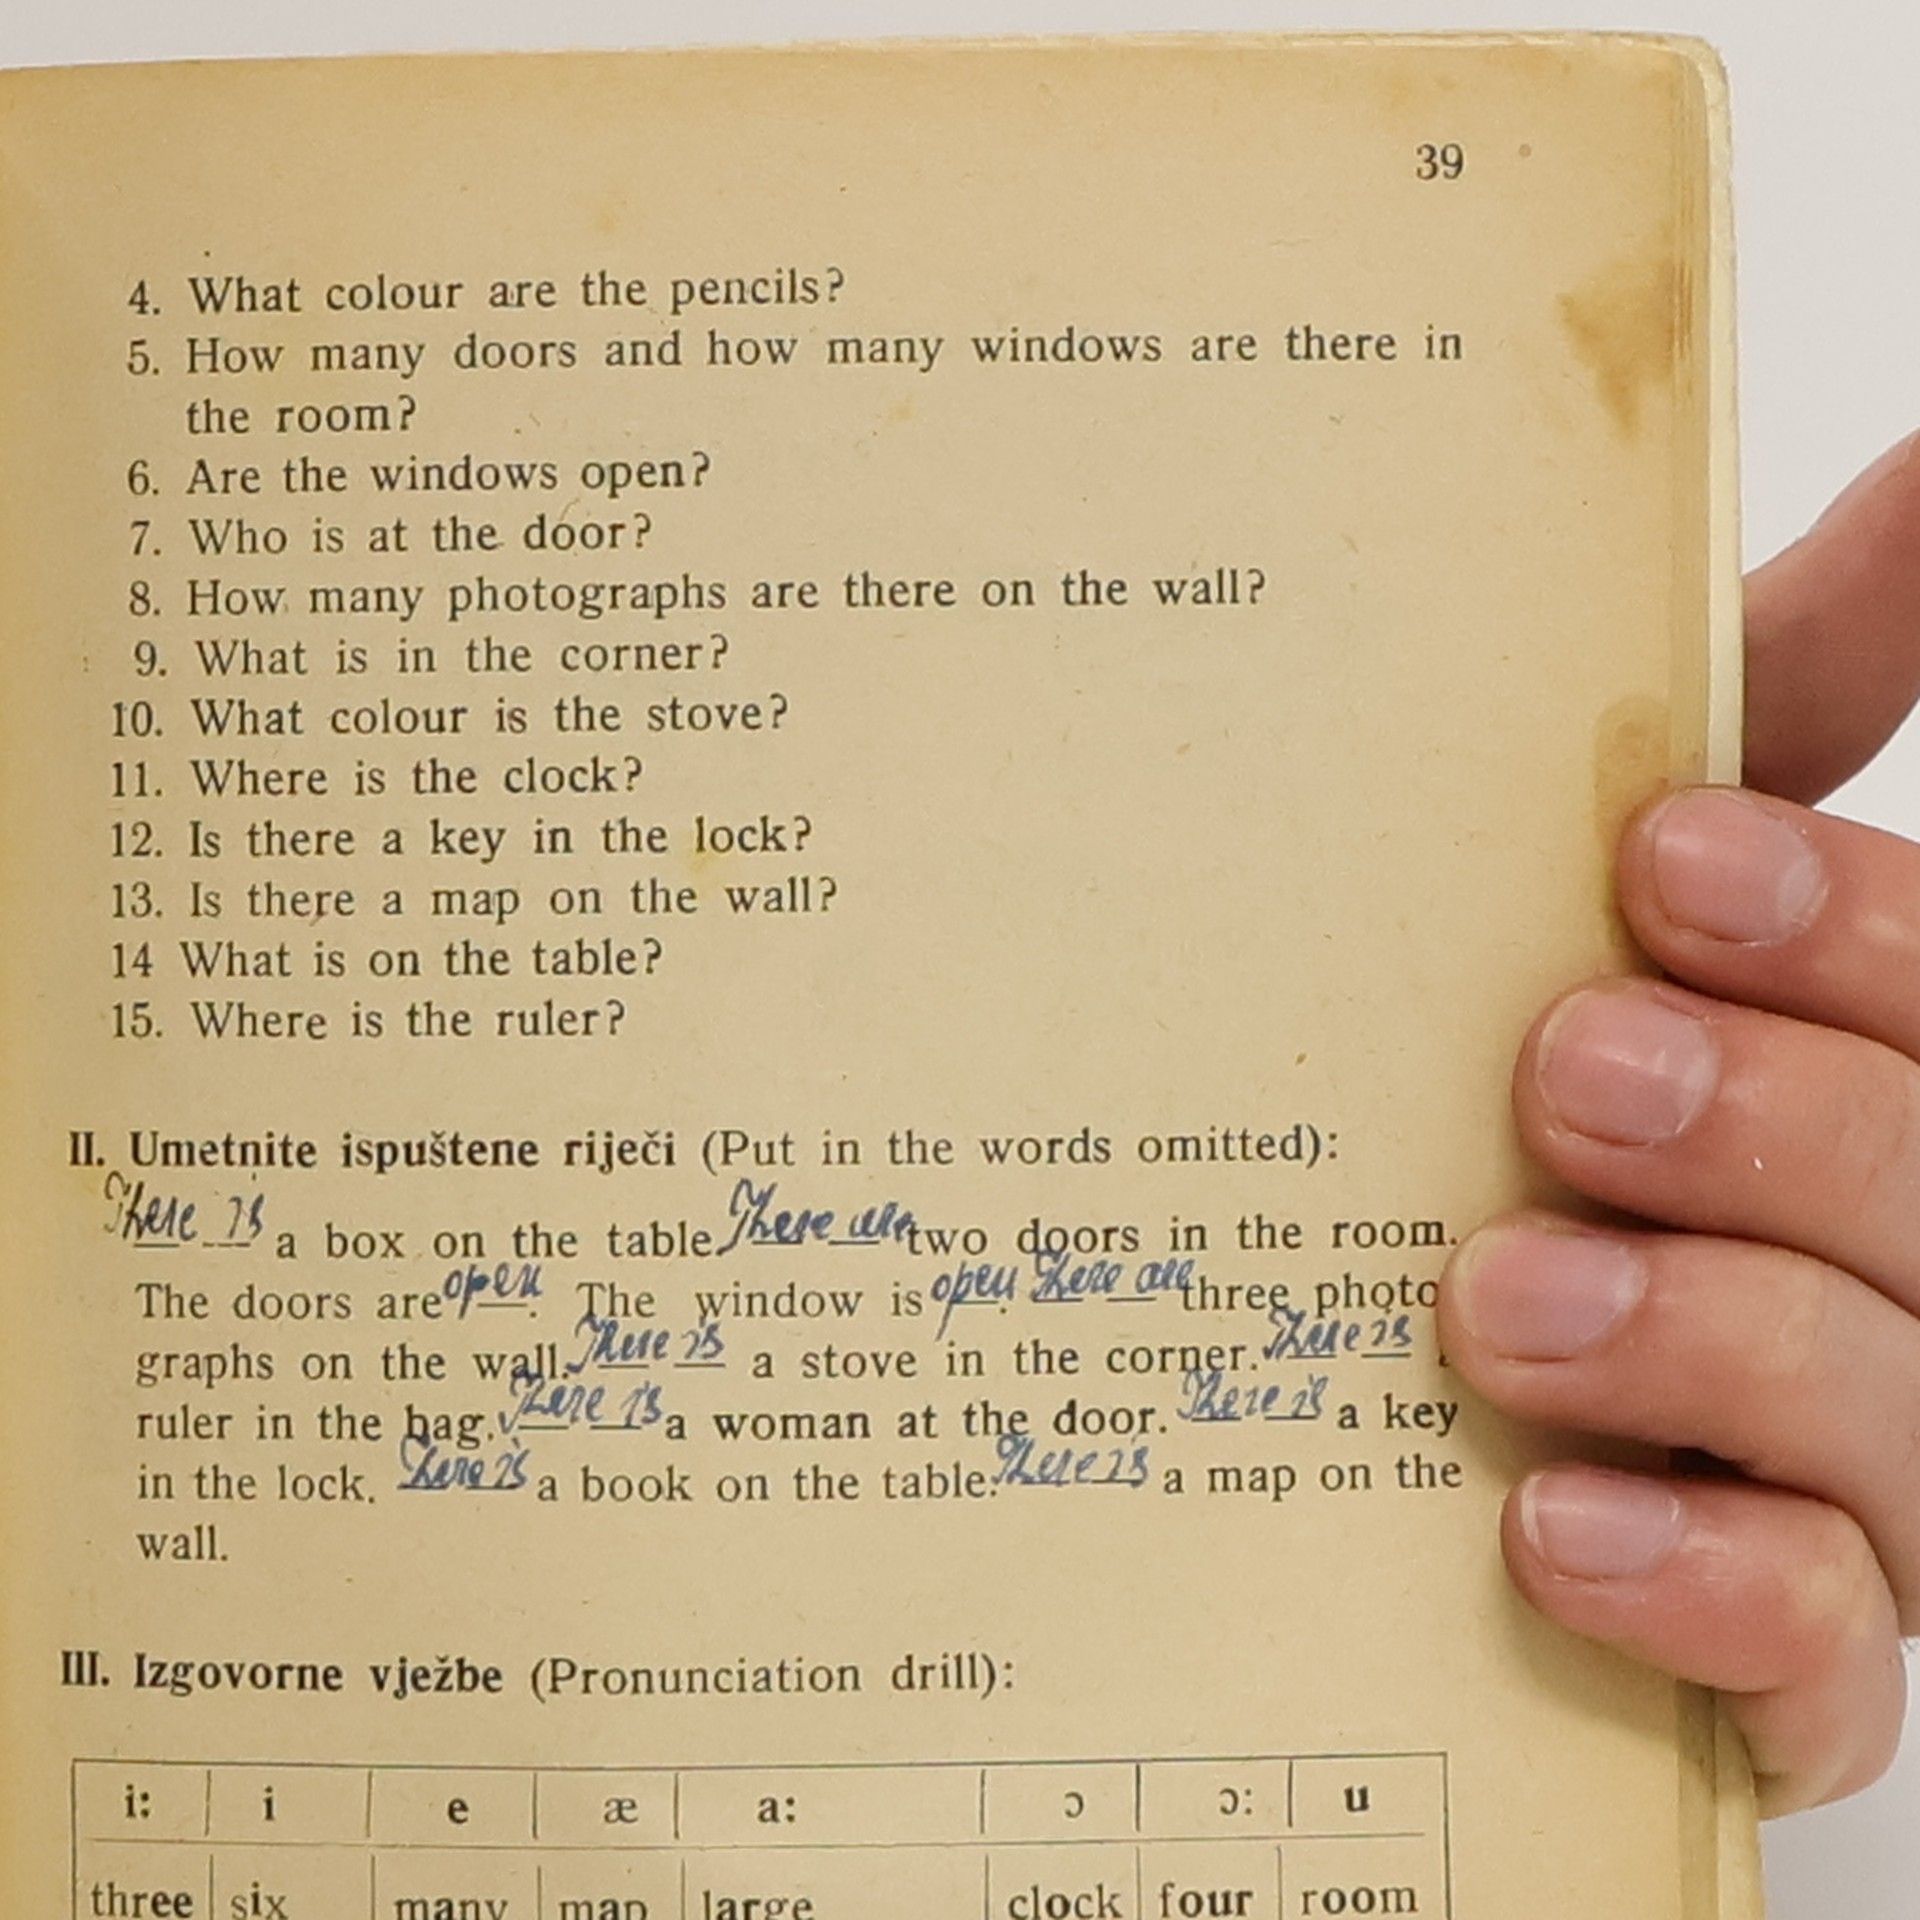 39
4. What colour are the pencils?
5. How many doors and how many windows are there in
the room?
6. Are the windows open?
7. Who is at the door?
8. How many photographs are there on the wall?
9. What is in the corner?
10. What colour is the stove?
11. Where is the clock?
12. Is there a key in the lock?
13. Is there a map on the wall?
14 What is on the table?
15. Where is the ruler?
II. Umetnite ispuštene riječi (Put in the words omitted):
There is a box on the table. There are two doors in the room.
The doors are open. The window is open. There are three photo
graphs on the wall. There is a stove in the corner. There is
ruler in the bag. There is a woman at the door. There is a key
in the lock. There is a book on the table. There is a map on the
wall.
III. Izgovorne vježbe (Pronunciation drill):
i: i e æ a: ɔ ɔ: u
three six many map large clock four room